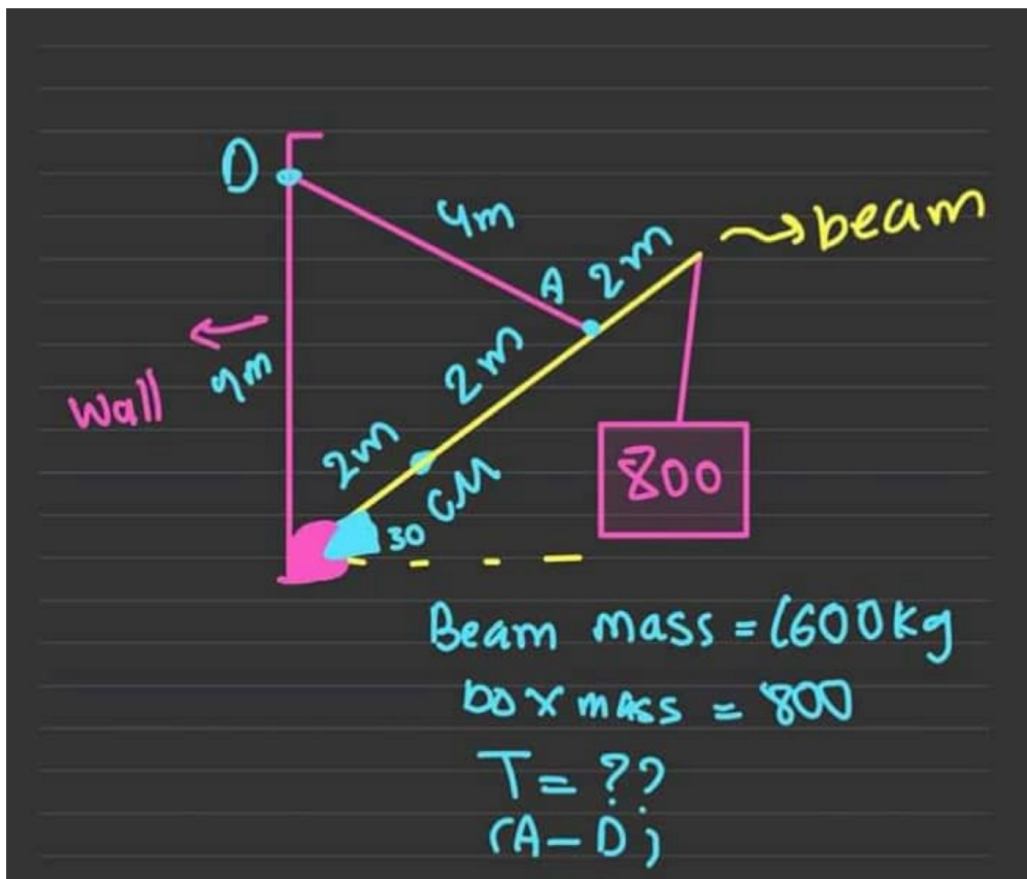 D
4m
A
2m
beam
2m
4m
Wall
2m
CM
30
800
Beam mass = 600kg
box mass = 800
T = ??
(A-D)